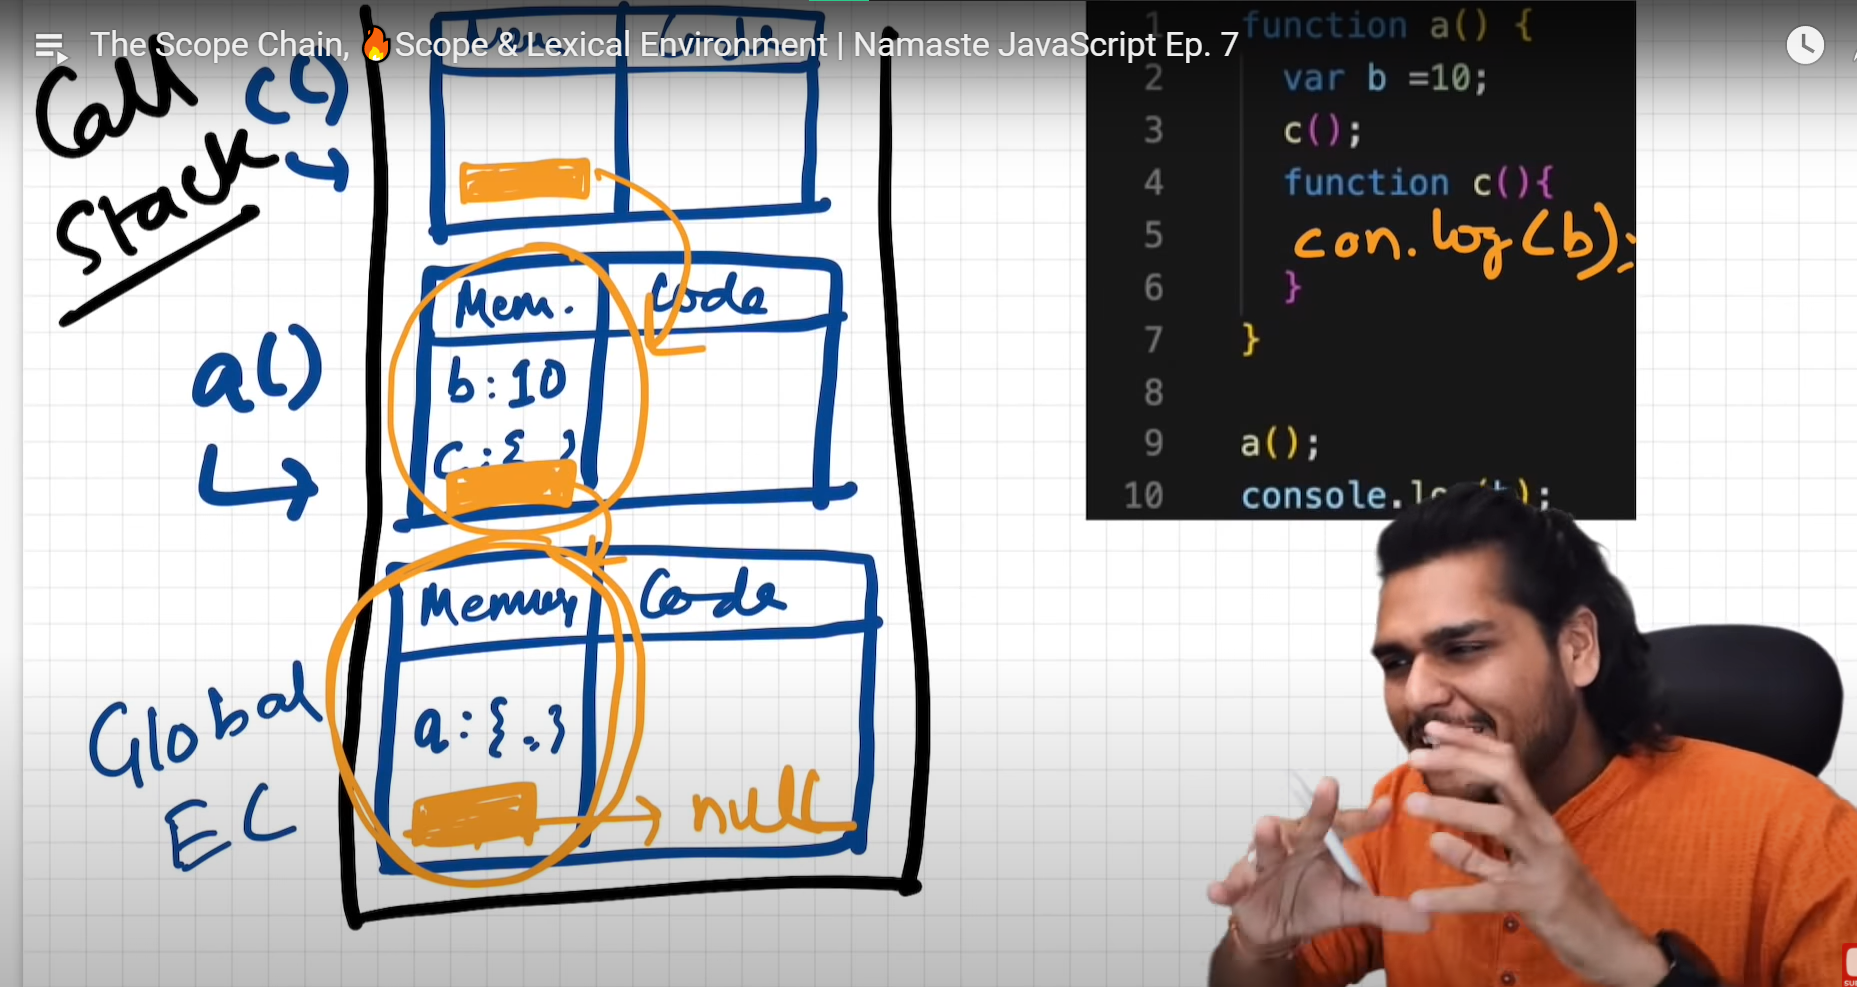 The Scope Chain, 🔥Scope & Lexical Environment | Namaste JavaScript Ep. 7
Call
Stack
c()
Mem. Code
a()
Mem. Code
b:10
c:{ }
Global
EC
Memory Code
a:{.}
null
1 function a() {
2 var b =10;
3 c();
4 function c(){
5 con.log(b);
6 }
7 }
8
9 a();
10 console.log(b);